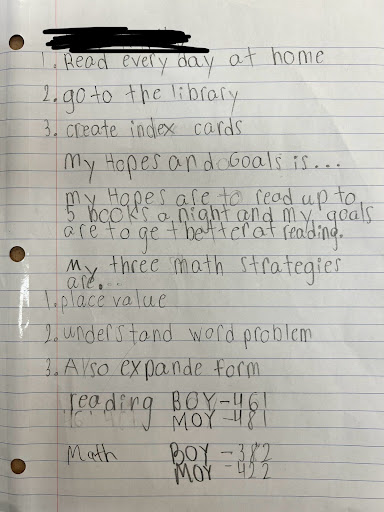 1. Read every day at home
2. go to the library
3. create index cards
My Hopes and Goals is...
my Hopes are to read up to
5 books a night and my goals
are to get better at reading.
My three math strategies
are...
1. place value
2. understand word problem
3. Also expande form
reading BOY-461
MOY-481
Math BOY-382
MOY-422